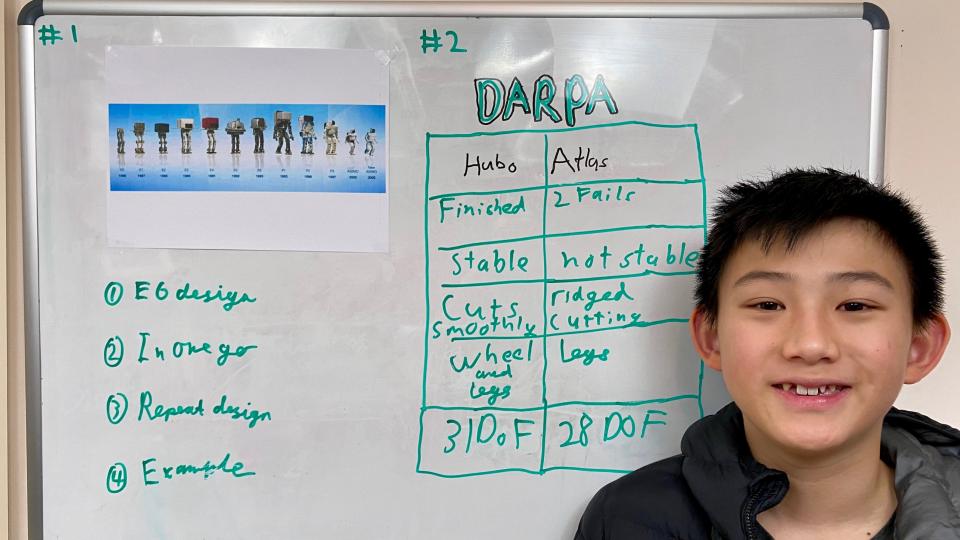 #1
#2
DARPA
Hubo Atlas
Finished 2 Fails
Stable not stable
Cuts ridged
smoothly cutting
wheel Legs
and
legs
31DoF 28 DOF
① E6 design
② In one go
③ Repeat design
④ Example